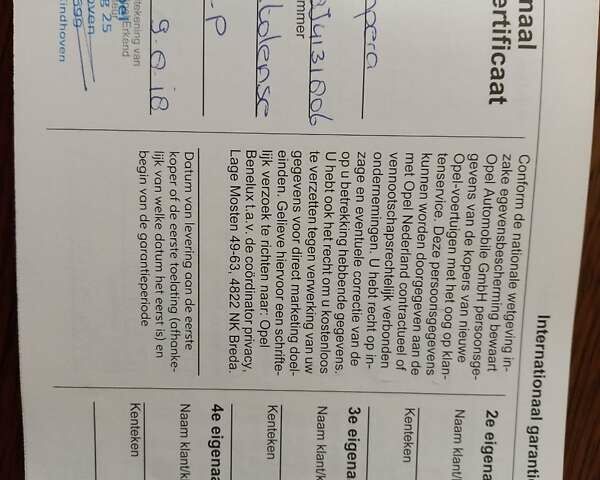 Internationaal garantie
naal
ertificaat
opera
ummer
0J4131806
g-o-18
tekening van
Erkend
g 25
indhoven
Conform de nationale wetgeving in-
zake egevensbescherming bewaart
Opel Automobile GmbH persoonsge-
gevens van de kopers van nieuwe
Opel-voertuigen met het oog op klan-
tenservice. Deze persoonsgegevens
kunnen worden doorgegeven aan de
met Opel Nederland contractueel of
vennootschapsrechtelijk verbonden
ondernemingen. U hebt recht op in-
zage en eventuele correctie van de
op u betrekking hebbende gegevens.
U hebt ook het recht om u kosteloos
te verzetten tegen verwerking van uw
gegevens voor direct marketing doel-
einden. Gelieve hiervoor een schrifte-
lijk verzoek te richten naar: Opel
Benelux t.a.v. de coördinator privacy,
Lage Mosten 49-63, 4822 NK Breda.
Datum van levering aan de eerste
koper of de eerste toelating (afhanke-
lijk van welke datum het eerst is) en
begin van de garantieperiode
2e eigena
Naam klant/
Kenteken
3e eigena
Naam klant/k
Kenteken
4e eigenaa
Naam klant/k
Kenteken